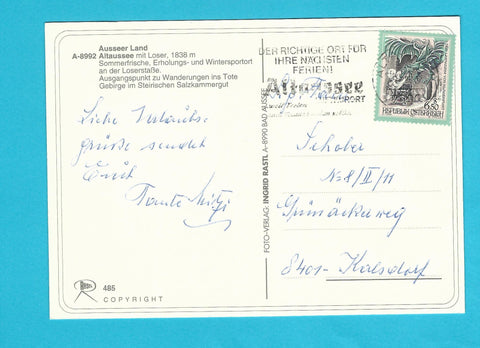 Ausseer Land
A-8992 Altaussee mit Loser, 1838 m
Sommerfrische, Erholungs- und Wintersportort
an der Loserstaße.
Ausgangspunkt zu Wanderungen ins Tote
Gebirge im Steirischen Salzkammergut
Liebe Urlaubs-
grüße sendet
Euch
Tante Mitzi
Rastl
485
COPYRIGHT
FOTO-VERLAG: INGRID RASTL A-8990 BAD AUSSEE
DER RICHTIGE ORT FÜR
IHRE NÄCHSTEN
FERIEN!
Altaussee
6.50
REPUBLIK ÖSTERREICH
Schober
No 8/II/11
Grünäckerweg
8401- Kalsdorf